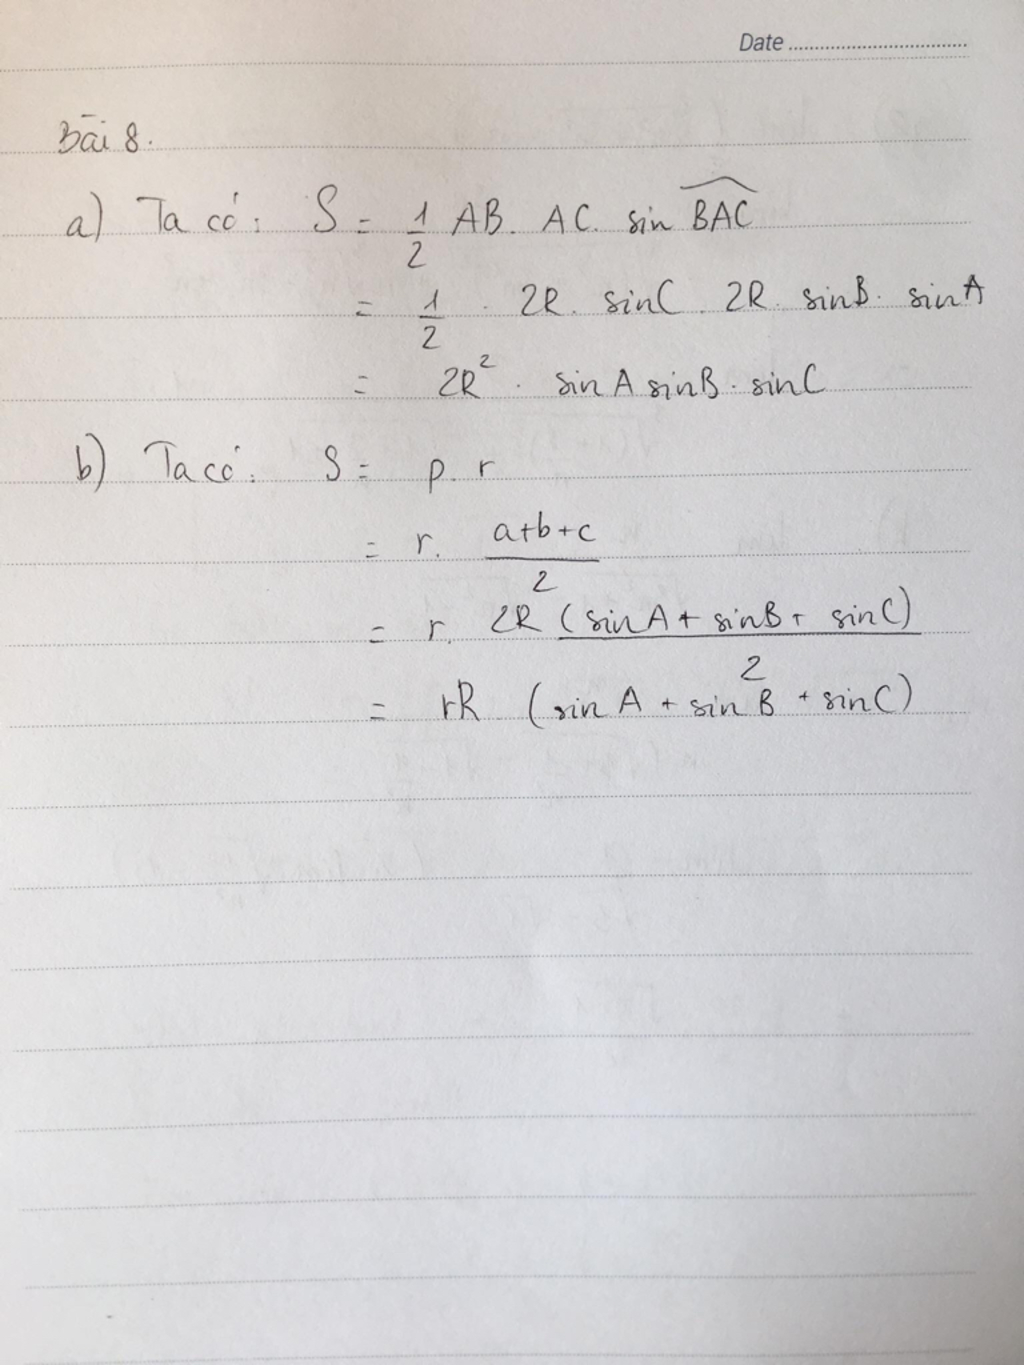 Date
Bài 8.
a) Ta có: S = 1/2 AB. AC. sin \widehat{BAC}
= 1/2 . 2R. sinC. 2R. sinB. sinA
= 2R². sinA sinB. sinC
b) Ta có: S = p. r
= r. (a+b+c)/2
= r. 2R (sinA + sinB + sinC)/2
= rR (sinA + sinB + sinC)